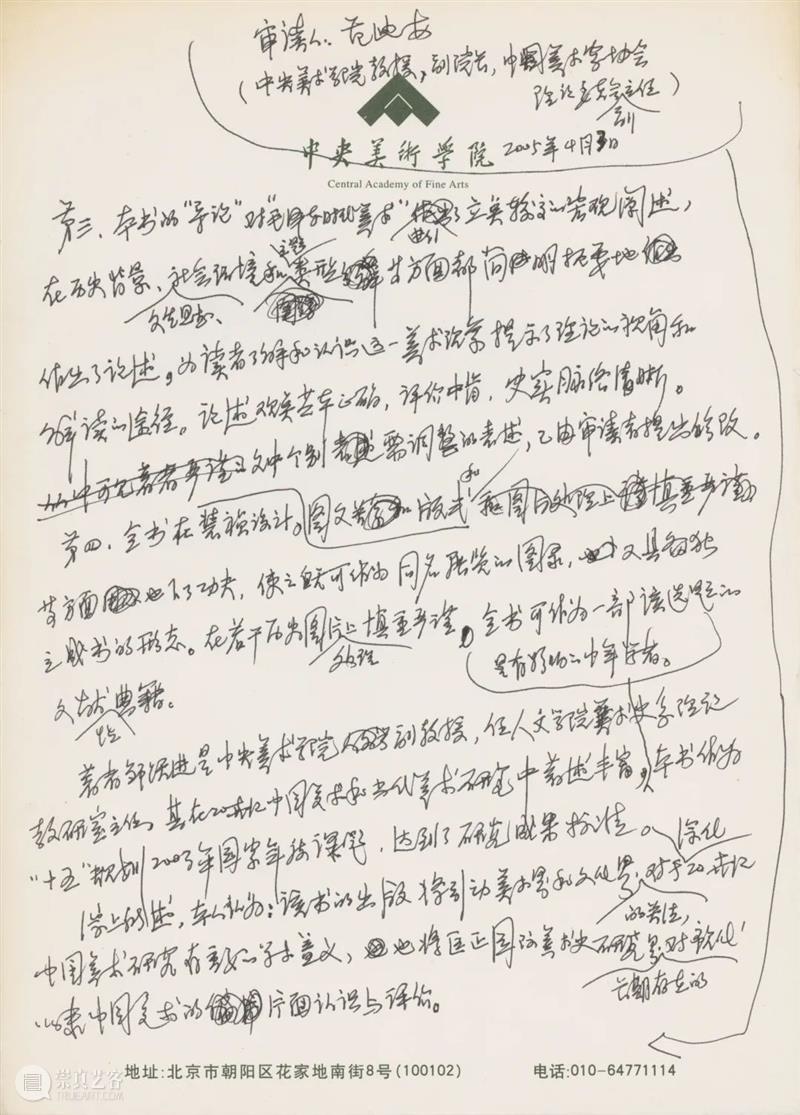 审读人：范迪安
（中央美术学院教授，副院长，中国美术家协会
理论委员会副主任）
中央美術學院 2005年4月3日
Central Academy of Fine Arts
第三、本书的“导论”对“毛泽东时代美术”作出了立英撰文的客观阐述，
在历史背景、文艺思想、社会环境和主题类型等方面都简明扼要地
作出了论述，为读者了解和认识这一美术现象提示了理论的视角和
解读的途径。论述观点基本正确，评价中肯，史实脉络清晰。
文中个别需调整的表述，已由审读者提出修改。
第四、全书在装祯设计、图文和版式
等方面也下了功夫，使之既可作为同名展览的图录，又具备独
立成书的形态。在若干历史图片处理上慎重严谨，全书可作为一部该选题的
文献典籍。
是有影响的中年学者。
著者邹跃进是中央美术学院副教授，任人文学院美术史系理论
教研室主任，其在20世纪中国美术和当代美术研究中著述丰富，本书作为
“十五”规划2003年国家年度课题，达到了研究成果标准。
综上所述，本人认为：该书的出版将引动美术界和文化界的关注，对于深化20世纪
中国美术研究有重要的学术意义，也将匡正国际美术史研究界长期存在的对现代
以来中国美术的片面认识与评价。
地址:北京市朝阳区花家地南街8号(100102) 电话:010-64771114
崇真艺客